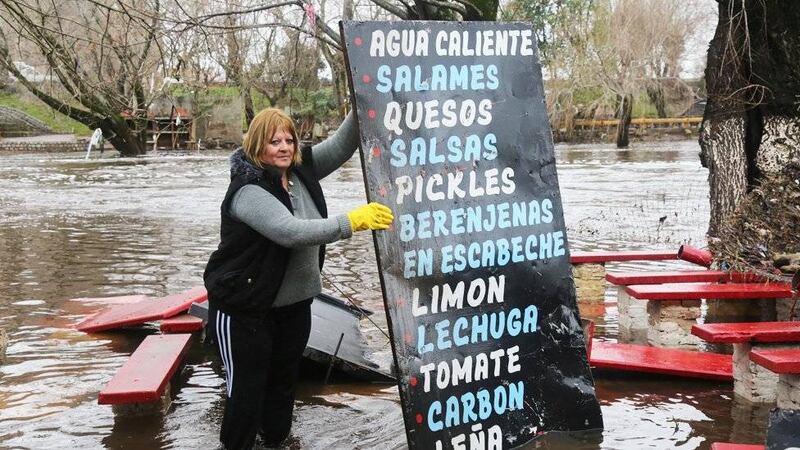 AGUA CALIENTE
SALAMES
QUESOS
SALSAS
PICKLES
BERENJENAS
EN ESCABECHE
LIMON
LECHUGA
TOMATE
CARBON
LEÑA